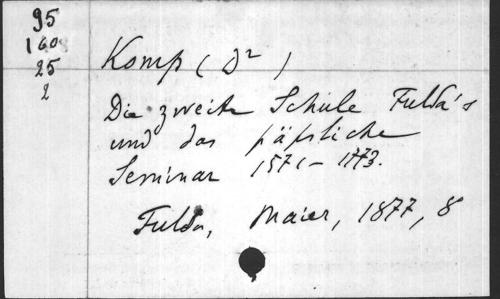 95
160
25
2
Komp (Dr)
Die zweite Schule Fulda's
und das päpstliche
Seminar 1571-1773.
Fulda, Maier, 1877, 8